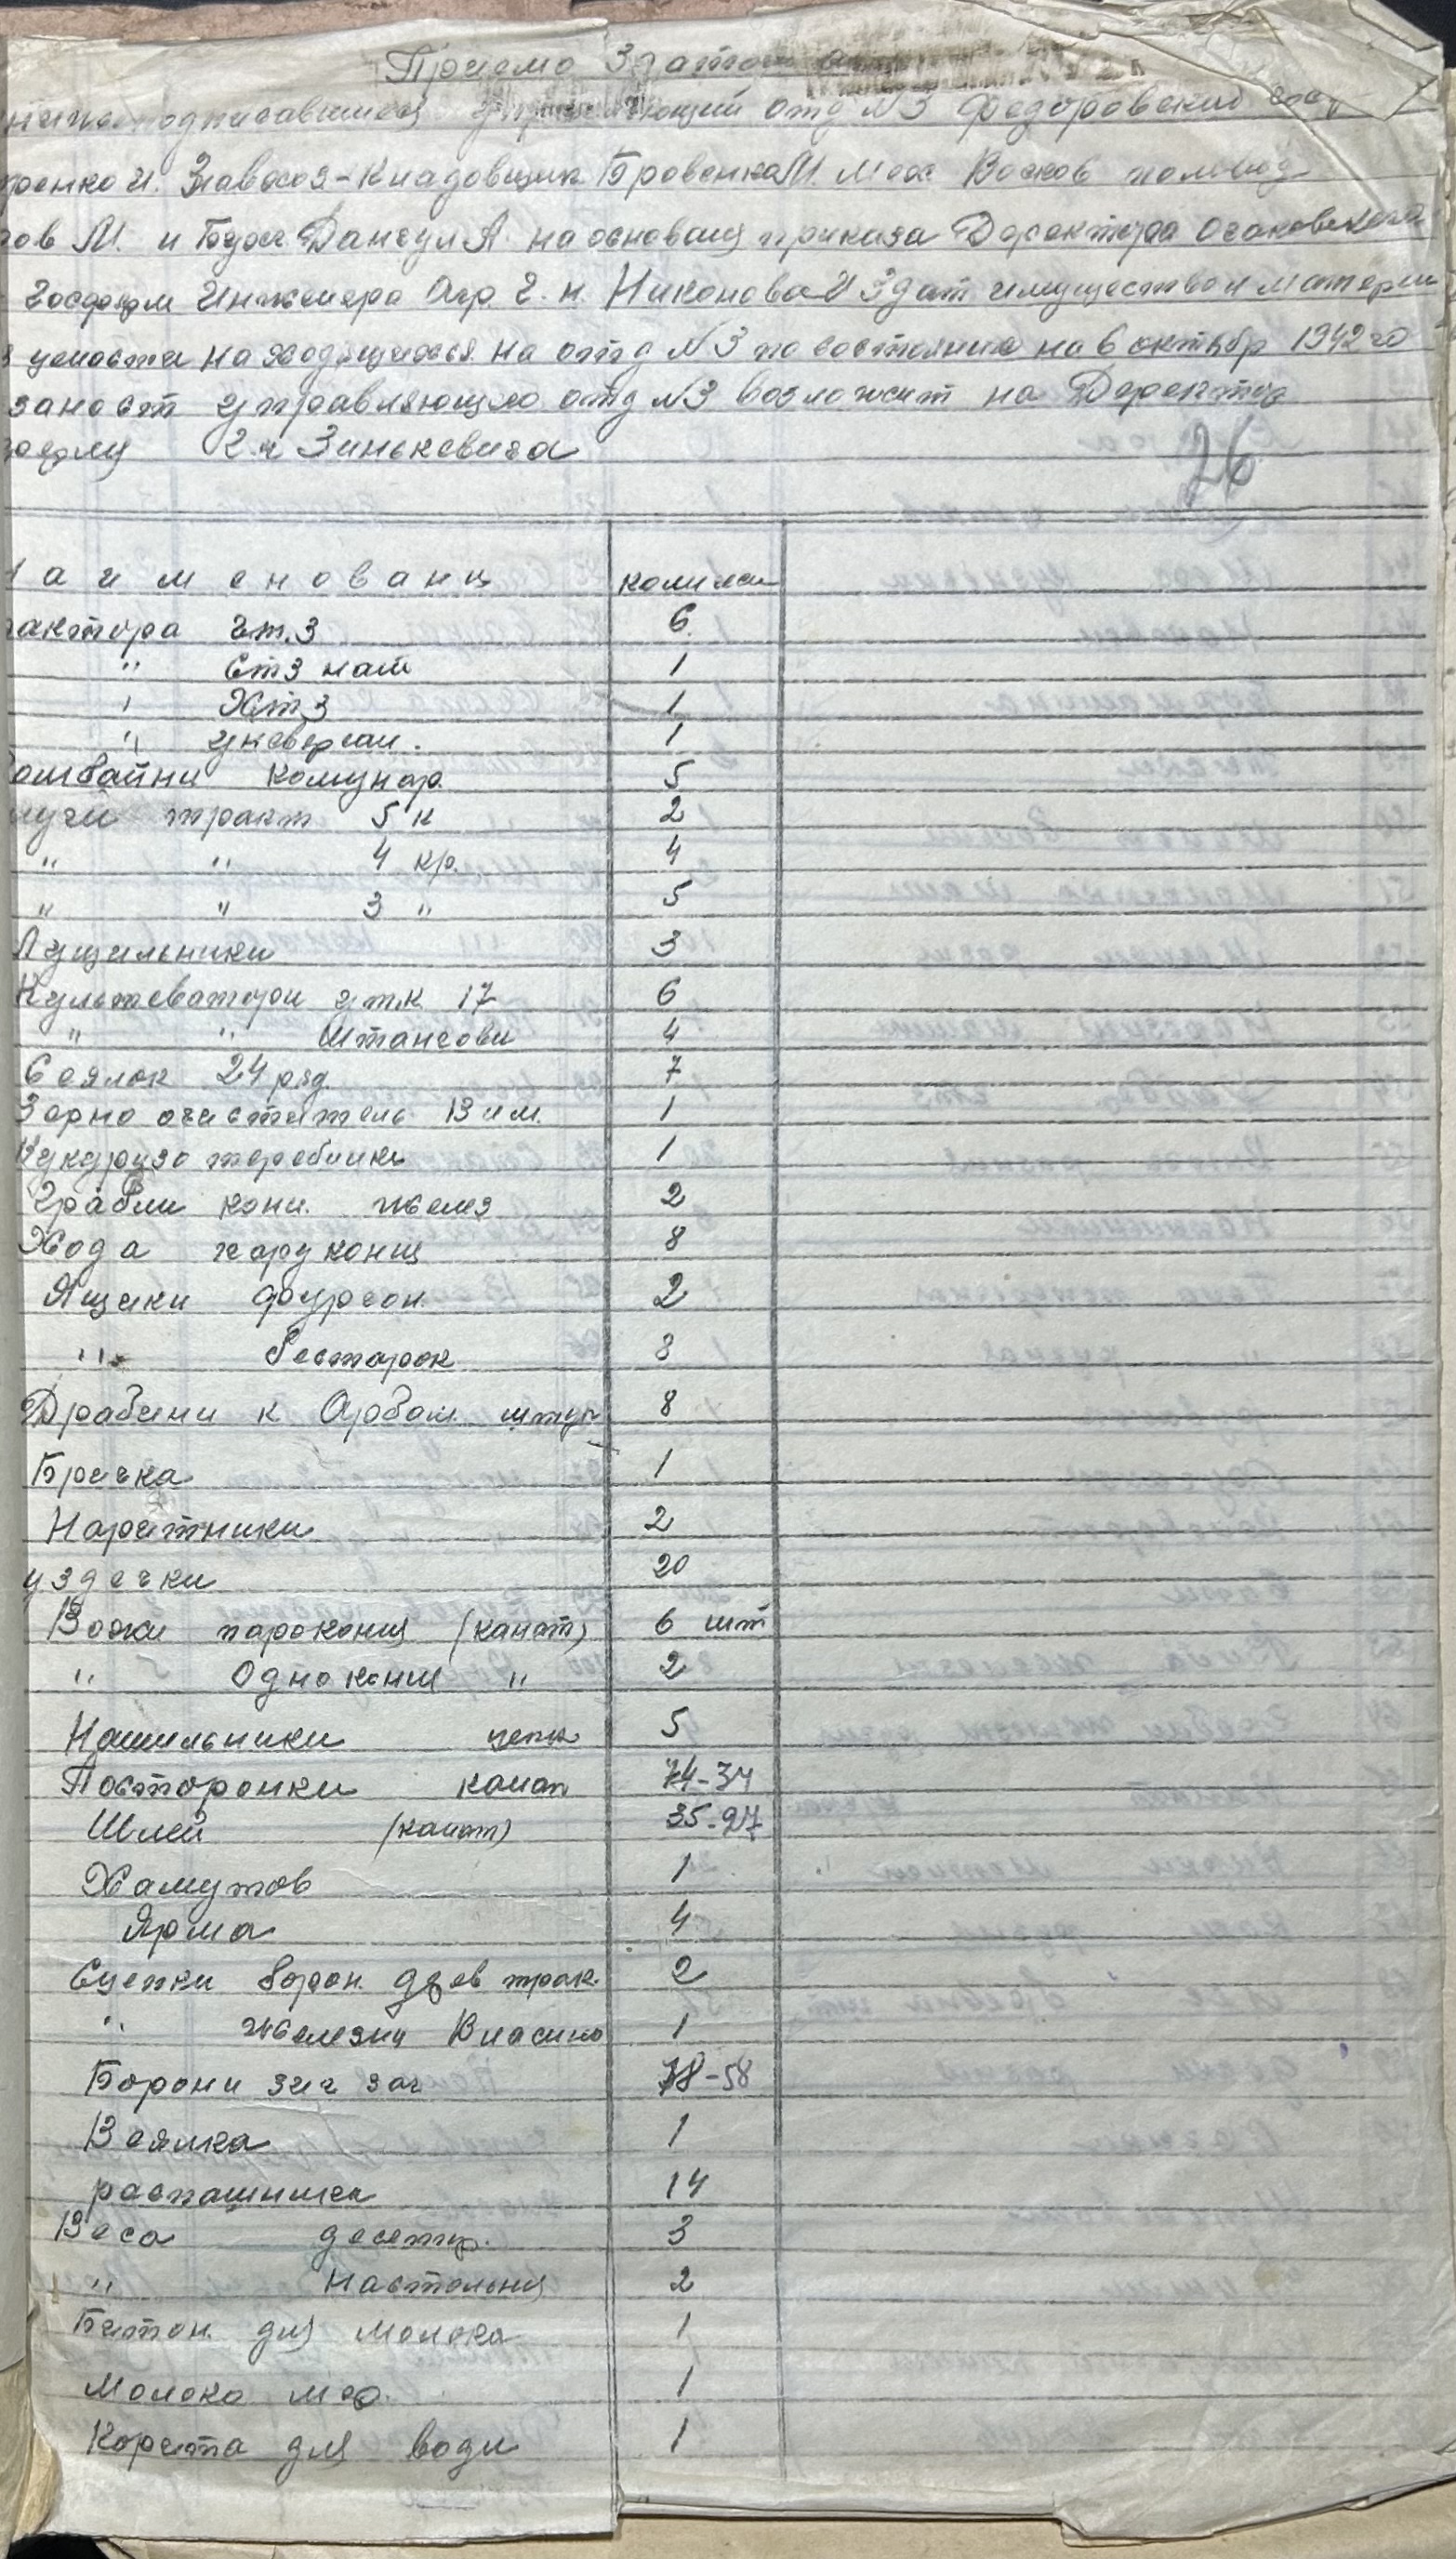 Приемо Здаточ
подписавшиеся управляющий отд N3 Федоровский
Завхоз-Кладовщик Бровенко М. Мех Восков
ов М. и Бухг Дансул А. на основаиц приказа Деректора Очаковского
Госсорм Инженера Агр. Г. н. Никонова И Здат имущество и матери
цености находящихся на отд N3 по состоянию на 6 октябр 1942 го
заност управляющго отд N3 возложит на Деректор
Г. н Зинькевича
26
Наименованиц колич
трактора Чт.З 6
" СтЗ нат 1
" ХтЗ 1
" универсал. 1
Комбайни Комунар. 5
Плуги тракт 5 к 2
" " 4 кр. 4
" " 3 " 5
Лущильники 3
Культеватори утк 17 6
" " Штангови 4
Сеялок 24 ряд. 7
Зерно очиститель Вим. 1
Кукурузо теребилки 1
Грабли кон. желез 2
Хода пару конц 8
Ящики фургон. 2
" бестарок 8
Драбини к Арбам штук 8
Бричка 1
Наритники 2
уздечки 20
Вожи пароконц (канат) 6 шт
" Одноконц " 2
Нашильники цепк 5
Посторонки канат 74-34
Шлей (канат) 35-27
Хамутов 1
Ярма 4
Сцепки борон. дэев трак. 2
" железни Власино 1
Борони зиг заг 78-58
Веялка 1
распашники 14
Веса десетир. 3
" Настольни 2
Битон. для молока 1
Молоко мер. 1
Корита для води 1